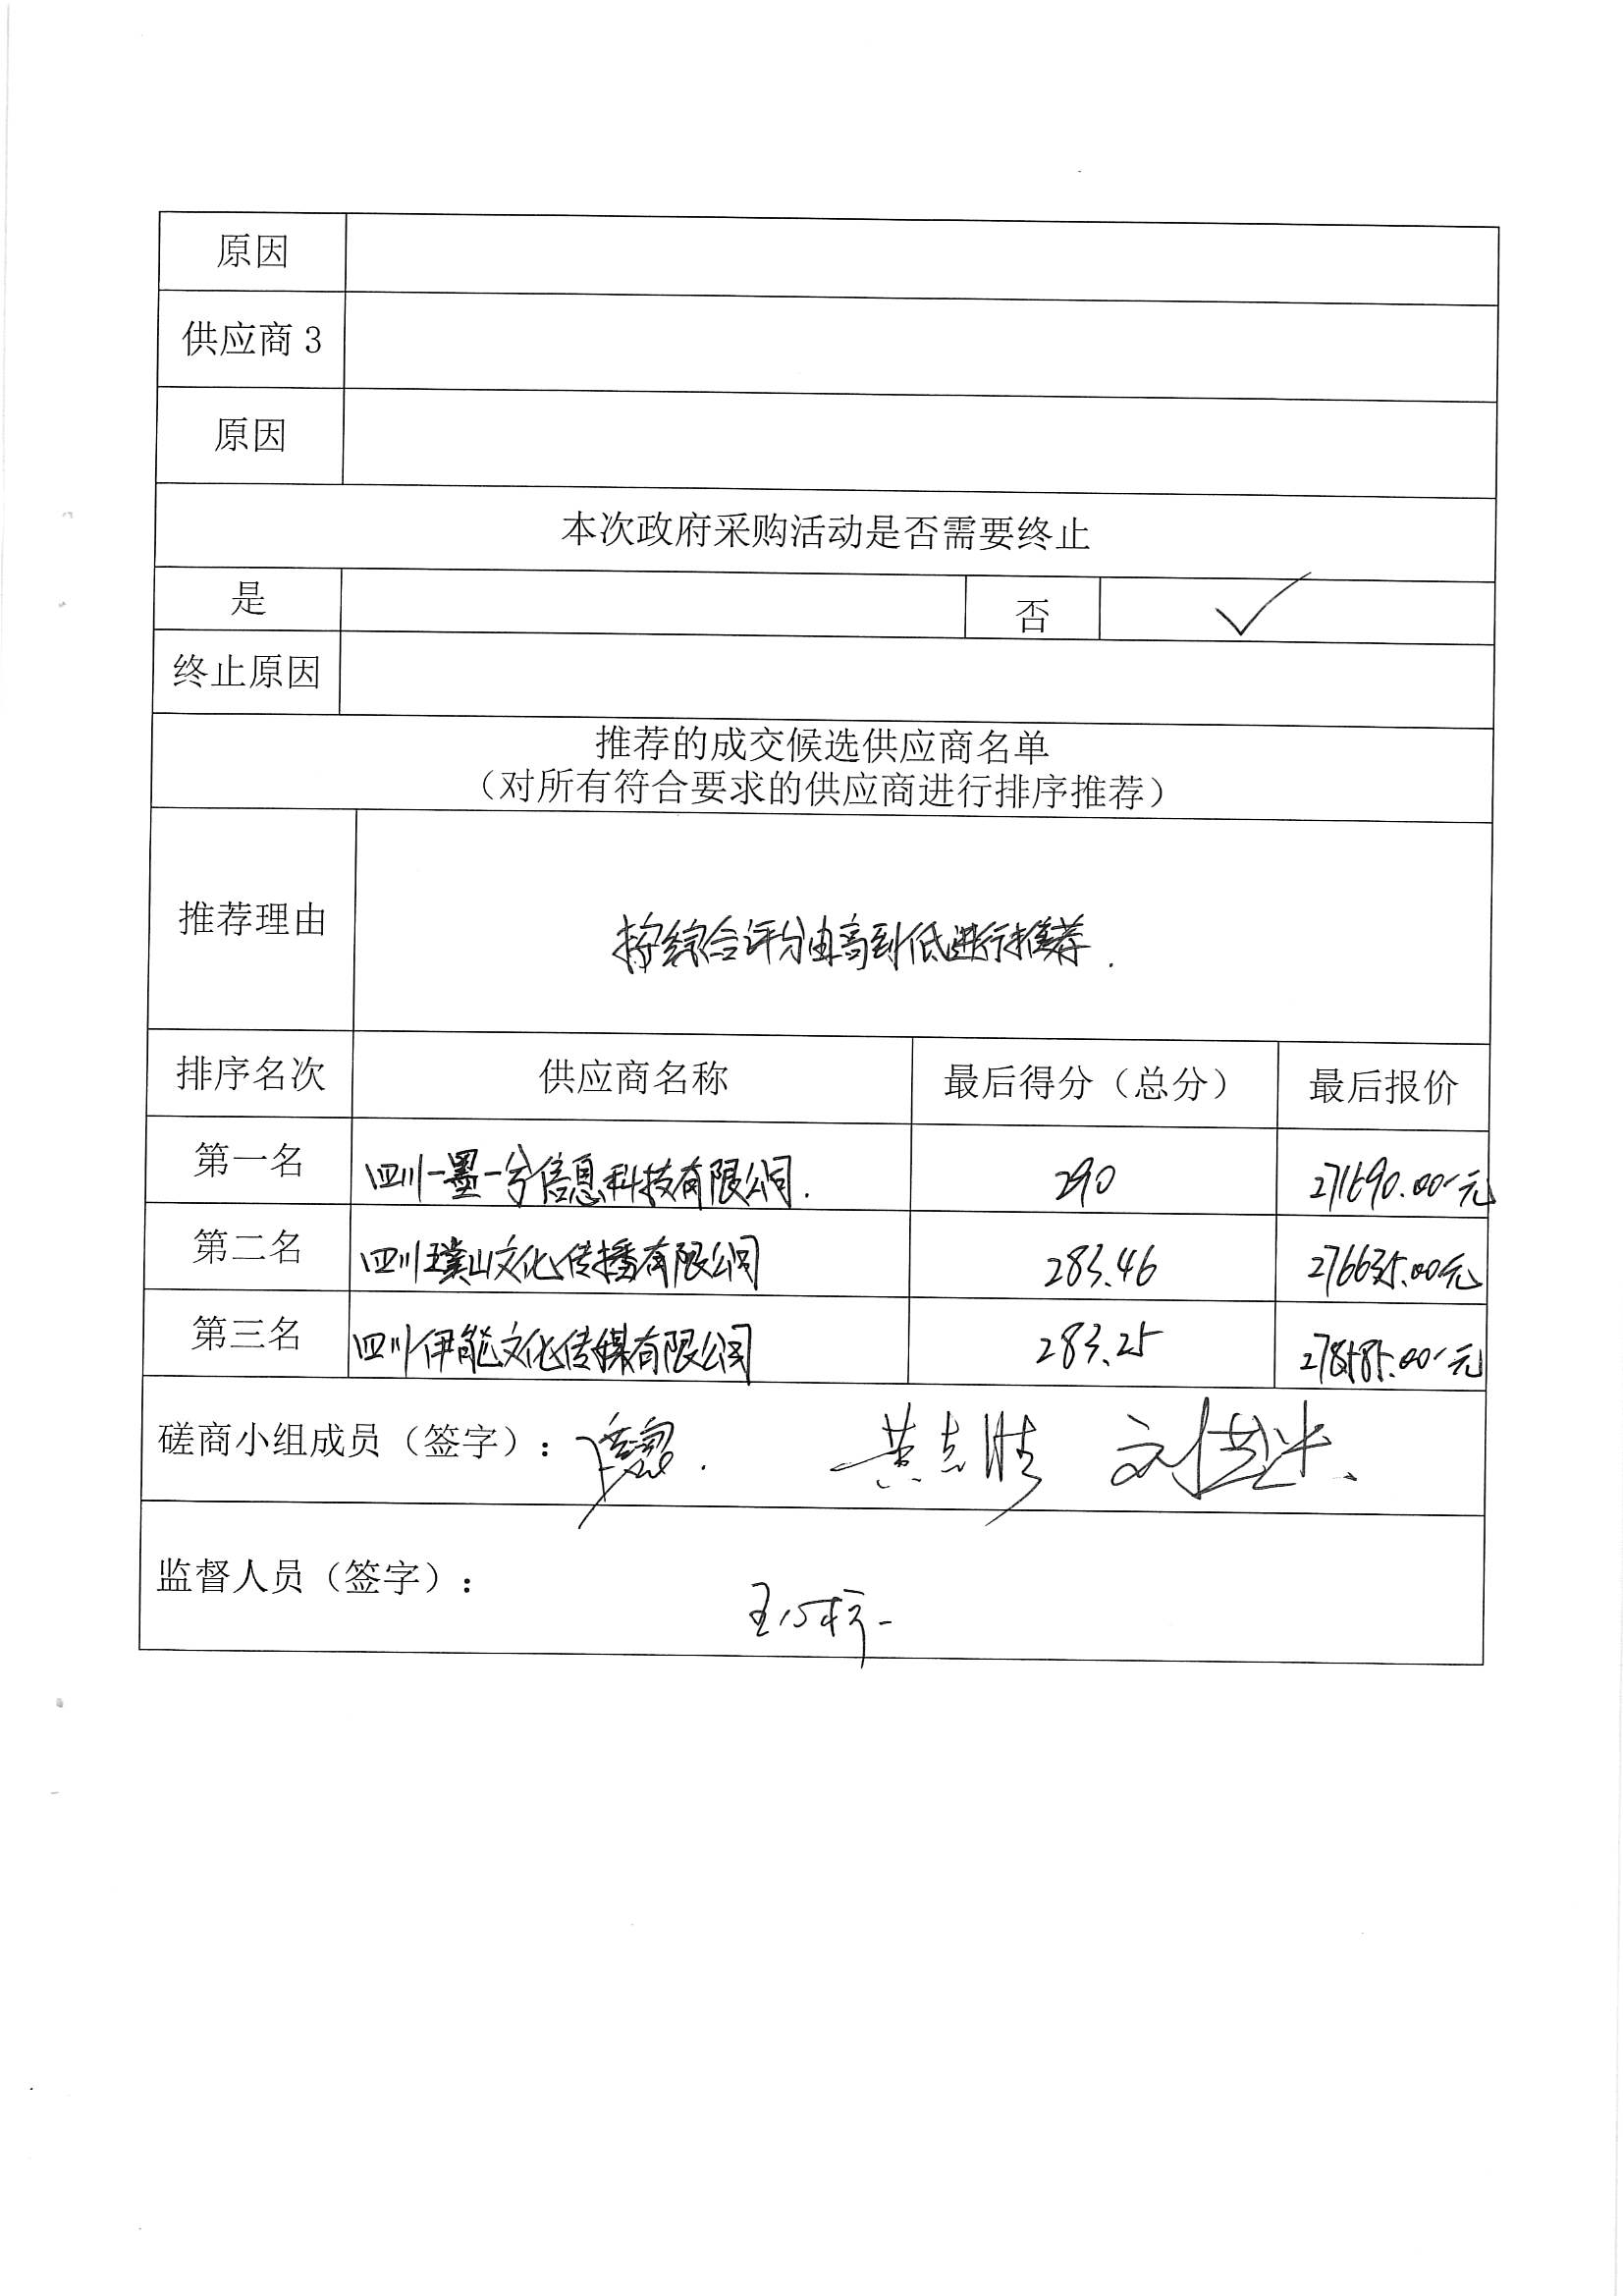 原因
供应商 3
原因
本次政府采购活动是否需要终止
是 否 ✓
终止原因
推荐的成交候选供应商名单
（对所有符合要求的供应商进行排序推荐）
推荐理由 按综合评分由高到低进行推荐.
排序名次 供应商名称 最后得分（总分） 最后报价
第一名 四川一墨一兮信息科技有限公司. 290 271690.00元
第二名 四川璞山文化传播有限公司 283.46 276635.00元
第三名 四川伊能文化传媒有限公司 283.25 278585.00元
磋商小组成员（签字）：
监督人员（签字）：